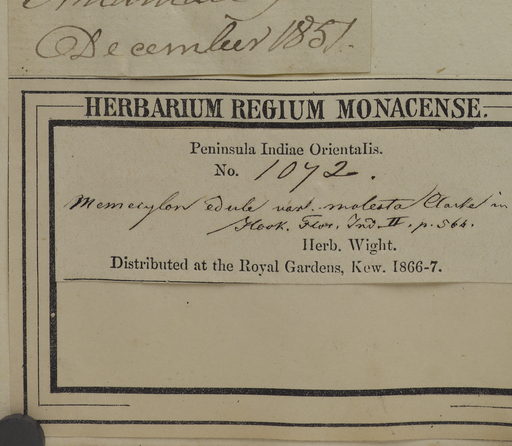 December 1851.
HERBARIUM REGIUM MONACENSE.
Peninsula Indiae Orientalis.
No. 1072.
Memecylon edule var. molesta Clarke in
Hook. Flor. Ind. II. p. 564.
Herb. Wight.
Distributed at the Royal Gardens, Kew. 1866-7.